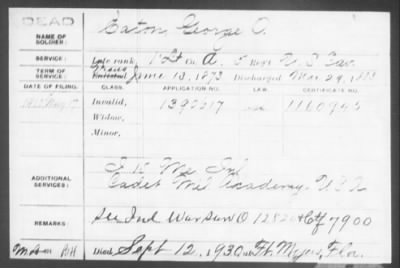 DEAD
NAME OF SOLDIER: Eaton, George O.
SERVICE: Late rank, 1" Lt Co. A, 5 Reg't U.S. Cav.
TERM OF SERVICE: June 13, 1873 Discharged Mar 29, 1883
DATE OF FILING. CLASS. APPLICATION NO. LAW. CERTIFICATE NO.
Invalid, 1390217
Widow,
Minor,
ADDITIONAL SERVICES:
Cadet Mil Academy, U.S.A
REMARKS: See Ind War Surv O 12820 + Ctf 7900
Died Sept 12, 1930 at Ft. Myers, Fla.